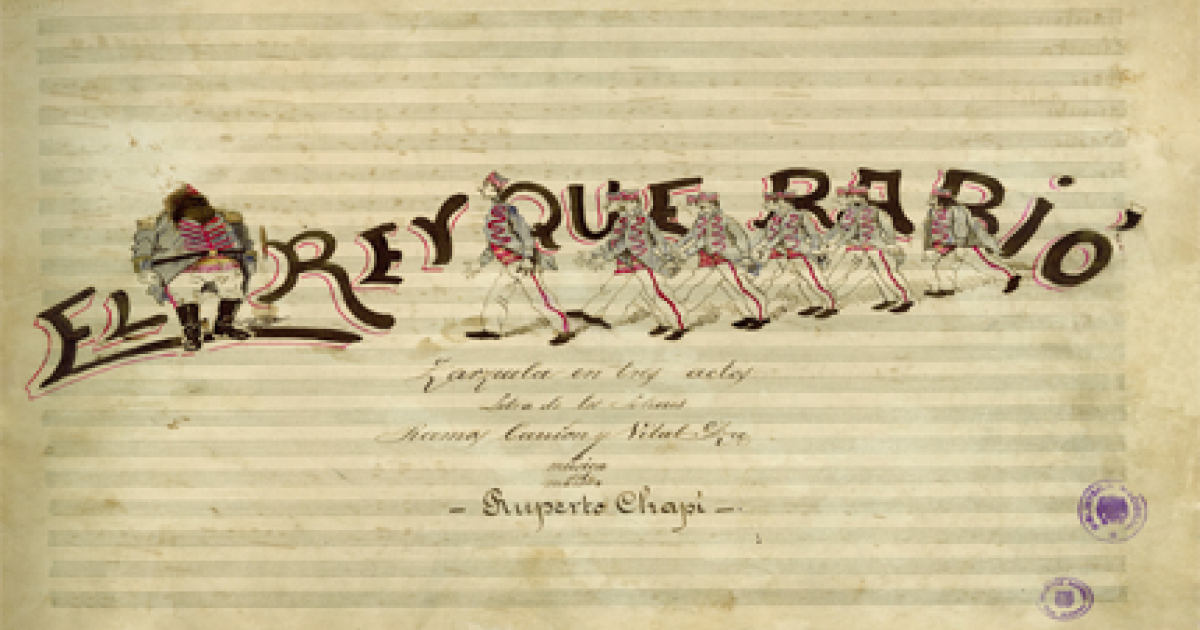 EL REY QUE RABIÓ
Zarzuela en tres actos
Letra de los Señores
Ramos Carrión y Vital Aza
música
Ruperto Chapí